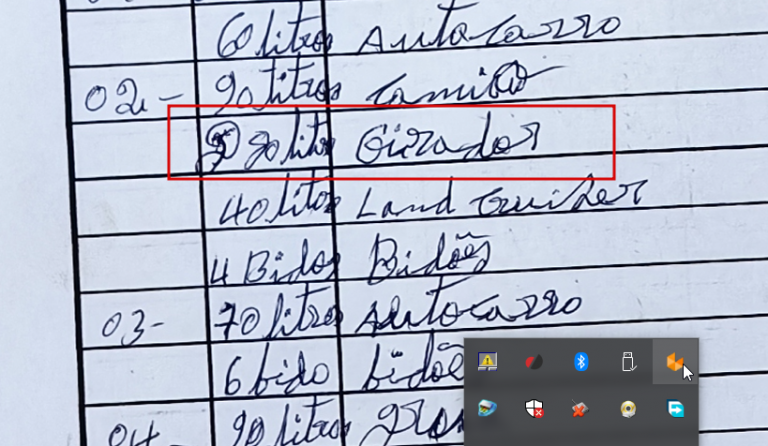 60 litros Autocarro
02- 90 litros Camião
30 litros Girador
40 litros Land Cruiser
4 Bidos Bidões
03- 70 litros Autocarro
6 bido bidõe
04 90 litros